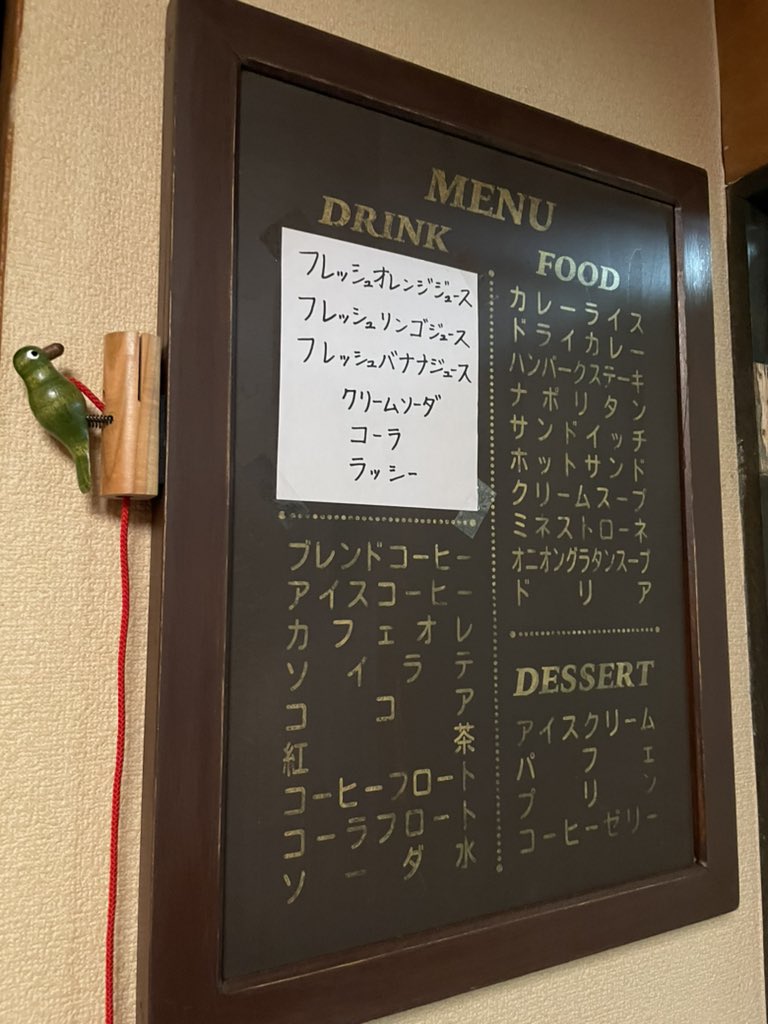 MENU
DRINK
フレッシュオレンジジュース
フレッシュリンゴジュース
フレッシュバナナジュース
クリームソーダ
コーラ
ラッシー
ブレンドコーヒー
アイスコーヒー
カフェオレ
ソイラテ
ココア
紅茶
コーヒーフロート
コーラフロート
ソーダ水
FOOD
カレーライス
ドライカレー
ハンバークステーキ
ナポリタン
サンドイッチ
ホットサンド
クリームスープ
ミネストローネ
オニオングラタンスープ
ドリア
DESSERT
アイスクリーム
パフェ
プリン
コーヒーゼリー